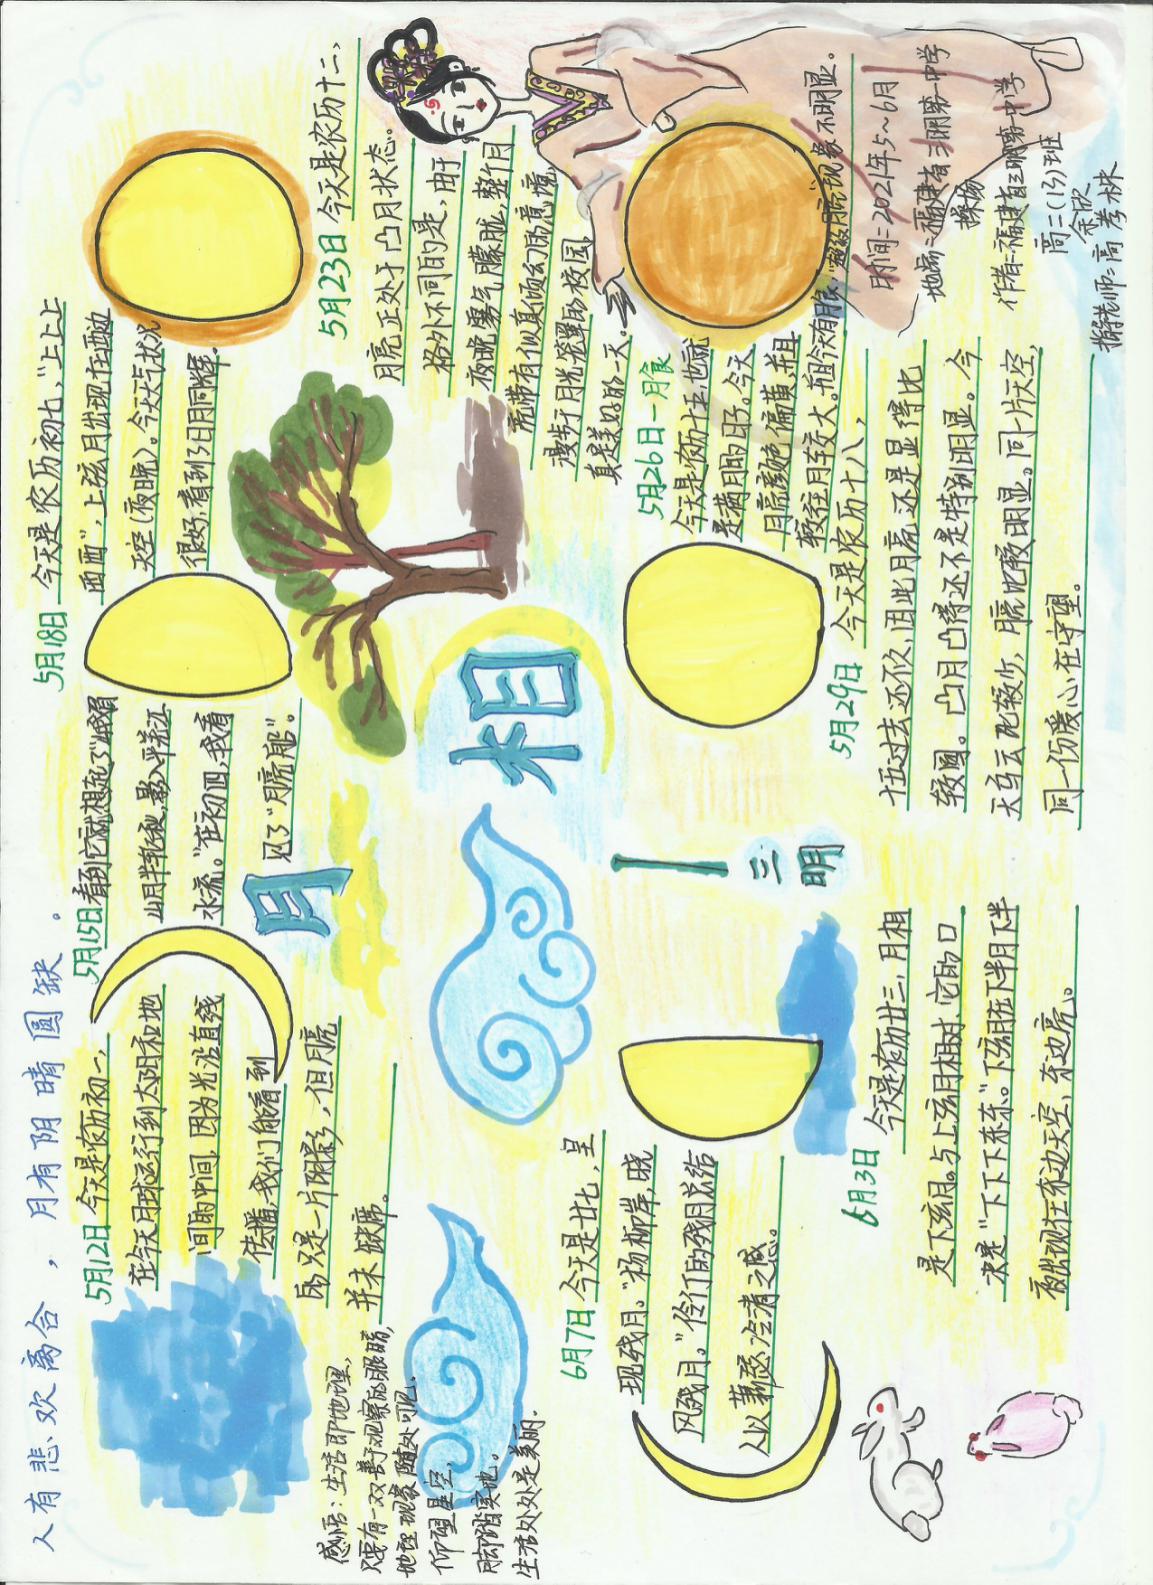 人有悲欢离合，月有阴晴圆缺。
5月12日 今天是农历初一，
在今天月球运行到太阳和地
间的中间，因为光沿直线
传播，我们能看到
的只是一片阴影，但月亮
并未缺席。
5月15日 看到它就想起了“峨眉
山月半轮秋，影入平羌江
水流。”在初四，我看
见了“月亮船”。
5月18日 今天是农历初七，“上上上
西西”，上弦月出现在西边
天空（夜晚）。今天天气状况
很好，看到了日月同辉。
5月23日 今天是农历十二，
月亮正处于凸月状态。
格外不同的是，由于
夜晚雾气朦胧，整个月
亮带有似真倾幻的意境
漫步于月光笼罩的校园
真是美好的一天。
月相
—三明
5月26日—月食
今天是农历十五，也就
是满月的日子。今天
月亮颜色偏黄，并且
较往月年较大。但今天有月食，“超级月亮”现象不明显。
5月29日 今天是农历十八，
十五过去还不久，因此月亮还是显得比
较圆。凸月凸得还不是特别明显。今
天乌云比较少，月亮比较明显。同一片天空，
同一份爱心在守望。
6月3日 今天是农历廿三，月相
是下弦月。与上弦月相对，它的口
决是“下下下东东。”下弦月在下半月下半
夜出现在东边天空，东边亮。
6月7日 今天是廿七，呈
现残月。“杨柳岸，晓
风残月。”伶仃的残月总给
人以萧瑟冷清之感。
感悟：生活即地理，
只要有一双善于观察的眼睛，
地理现象随处可见。
仰望星空，
脚踏实地。
生活处处是美丽。
时间：2021年5~6月
地点：福建省三明第一中学
操场
作者：福建省三明第一中学
高二（13）班
余欣
指导老师：高考林